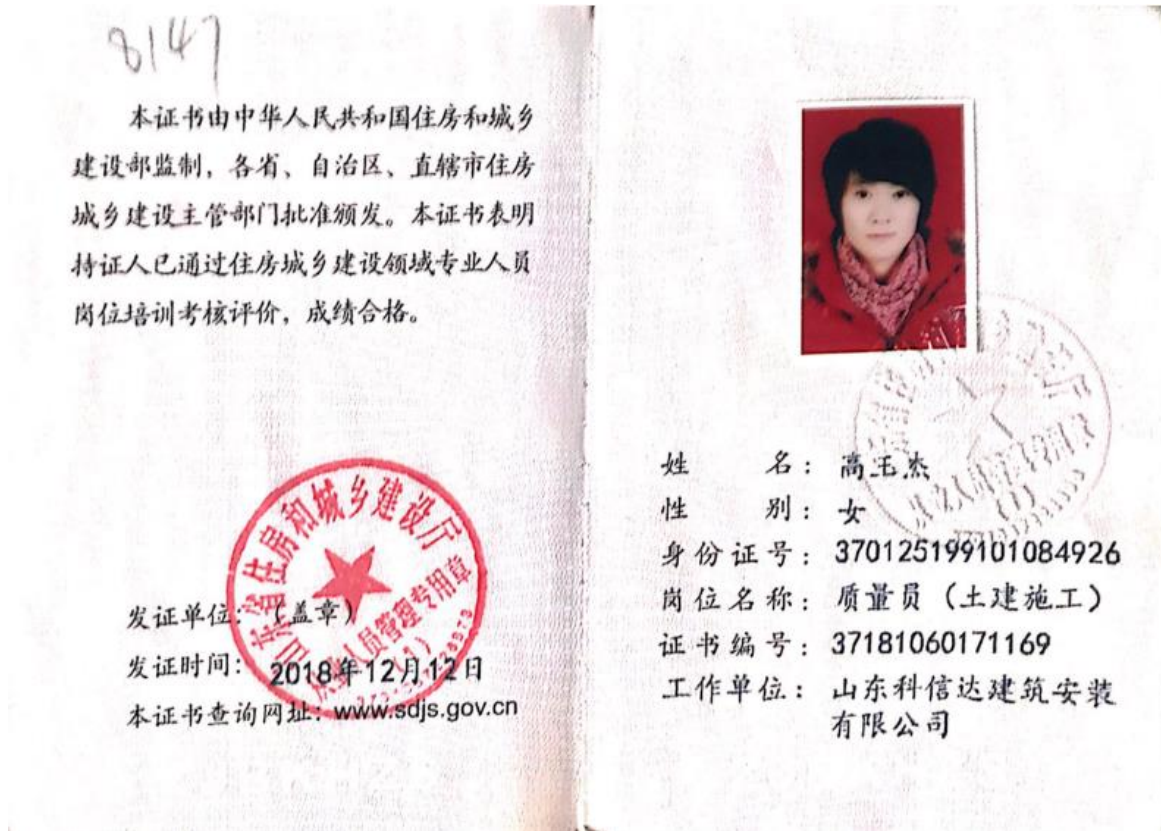 8147
本证书由中华人民共和国住房和城乡
建设部监制，各省、自治区、直辖市住房
城乡建设主管部门批准颁发。本证书表明
持证人已通过住房城乡建设领域专业人员
岗位培训考核评价，成绩合格。
山东省住房和城乡建设厅
人员管理专用章
(1)
发证单位：（盖章）
发证时间：2018年12月12日
本证书查询网址：www.sdjs.gov.cn
姓名：高玉杰
性别：女
身份证号：370125199101084926
岗位名称：质量员（土建施工）
证书编号：37181060171169
工作单位：山东科信达建筑安装
有限公司